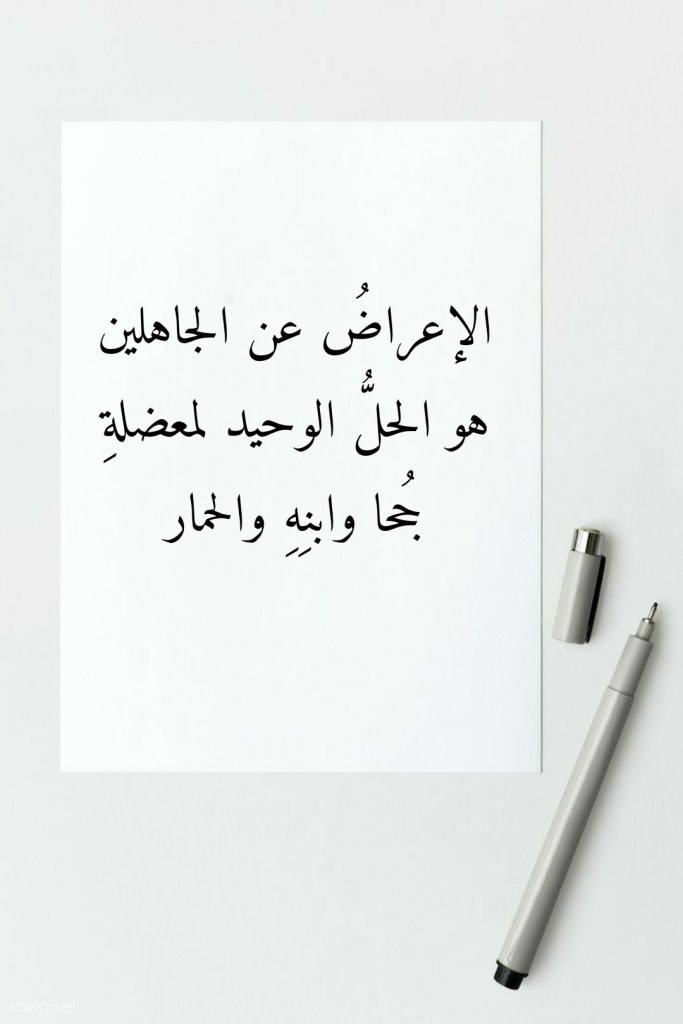 الإعراضُ عن الجاهلين
هو الحلُّ الوحيد لمعضلةِ
جُحا وابنِهِ والحمار
rawpixel